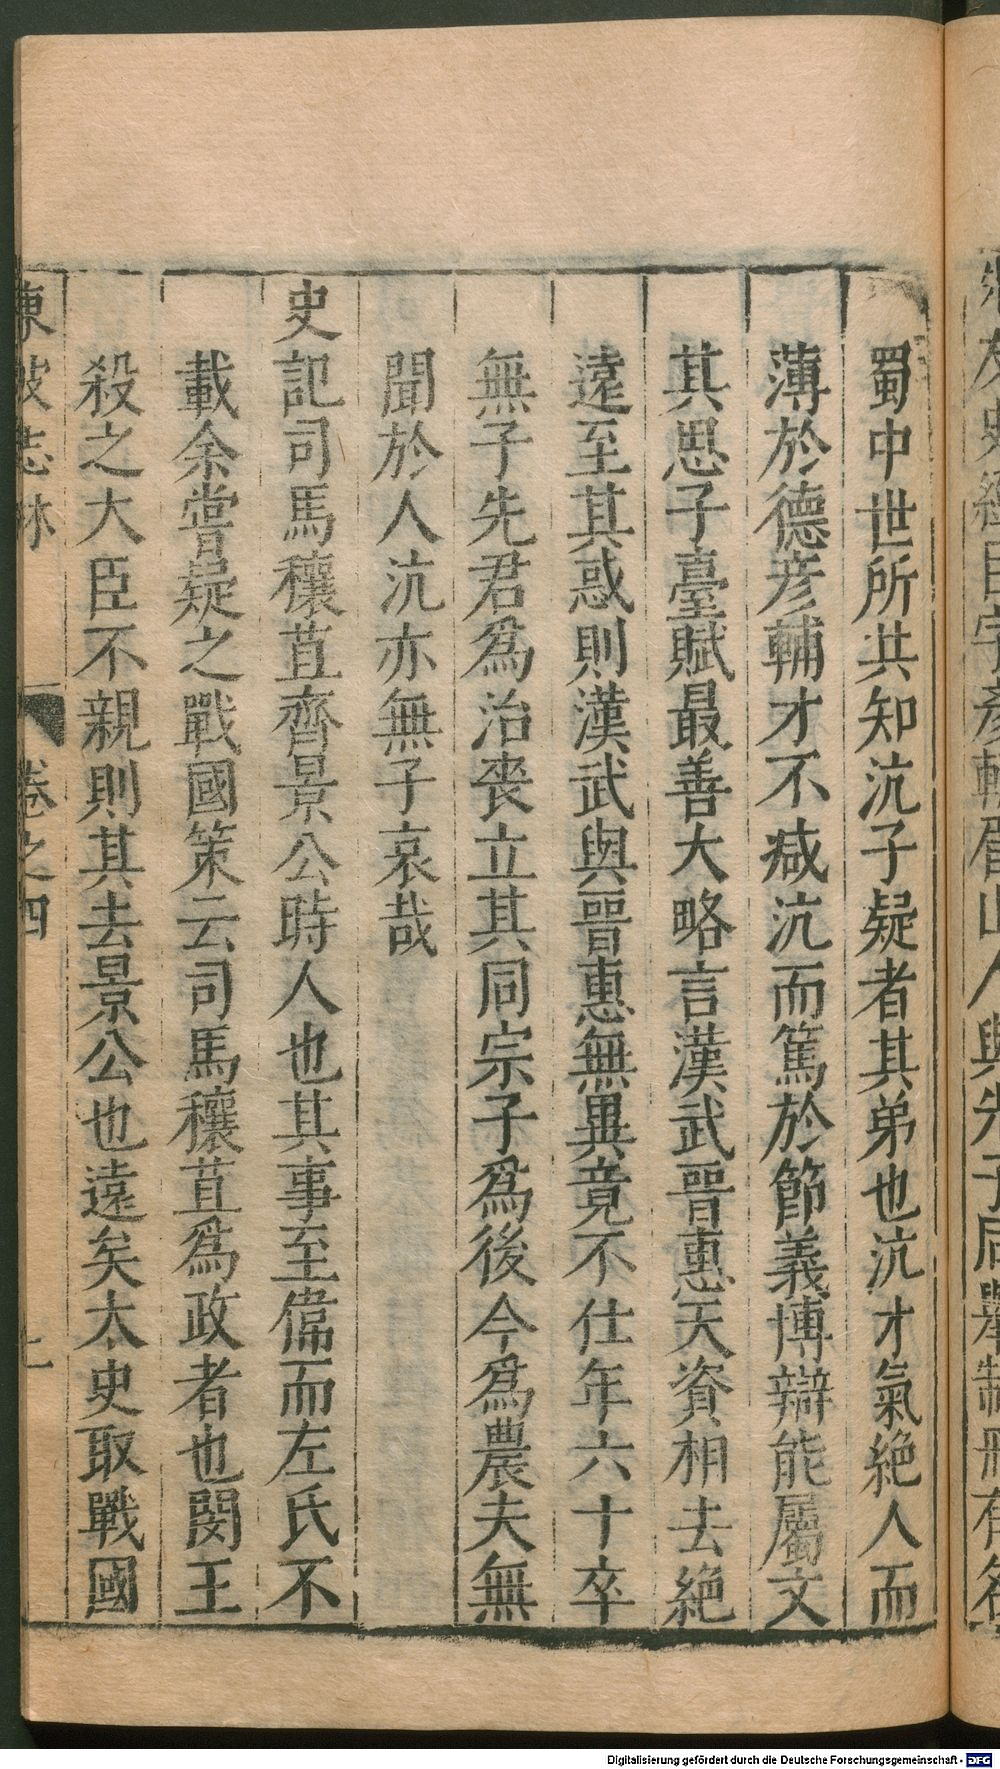 蜀中世所共知沆子疑者其弟也沆才氣絶人而
薄於德彦輔才不减沆而篤於節義博辯能屬文
其思子臺賦最善大略言漢武晉惠天資相去絶
遠至其惑則漢武與晉惠無異竟不仕年六十卒
無子先君爲治喪立其同宗子爲後今爲農夫無
聞於人沆亦無子哀哉
史記司馬穰苴齊景公時人也其事至偉而左氏不
載余嘗疑之戰國策云司馬穰苴爲政者也閔王
殺之大臣不親則其去景公也遠矣太史取戰國
東坡志林
卷之四
七
Digitalisierung gefördert durch die Deutsche Forschungsgemeinschaft - DFG